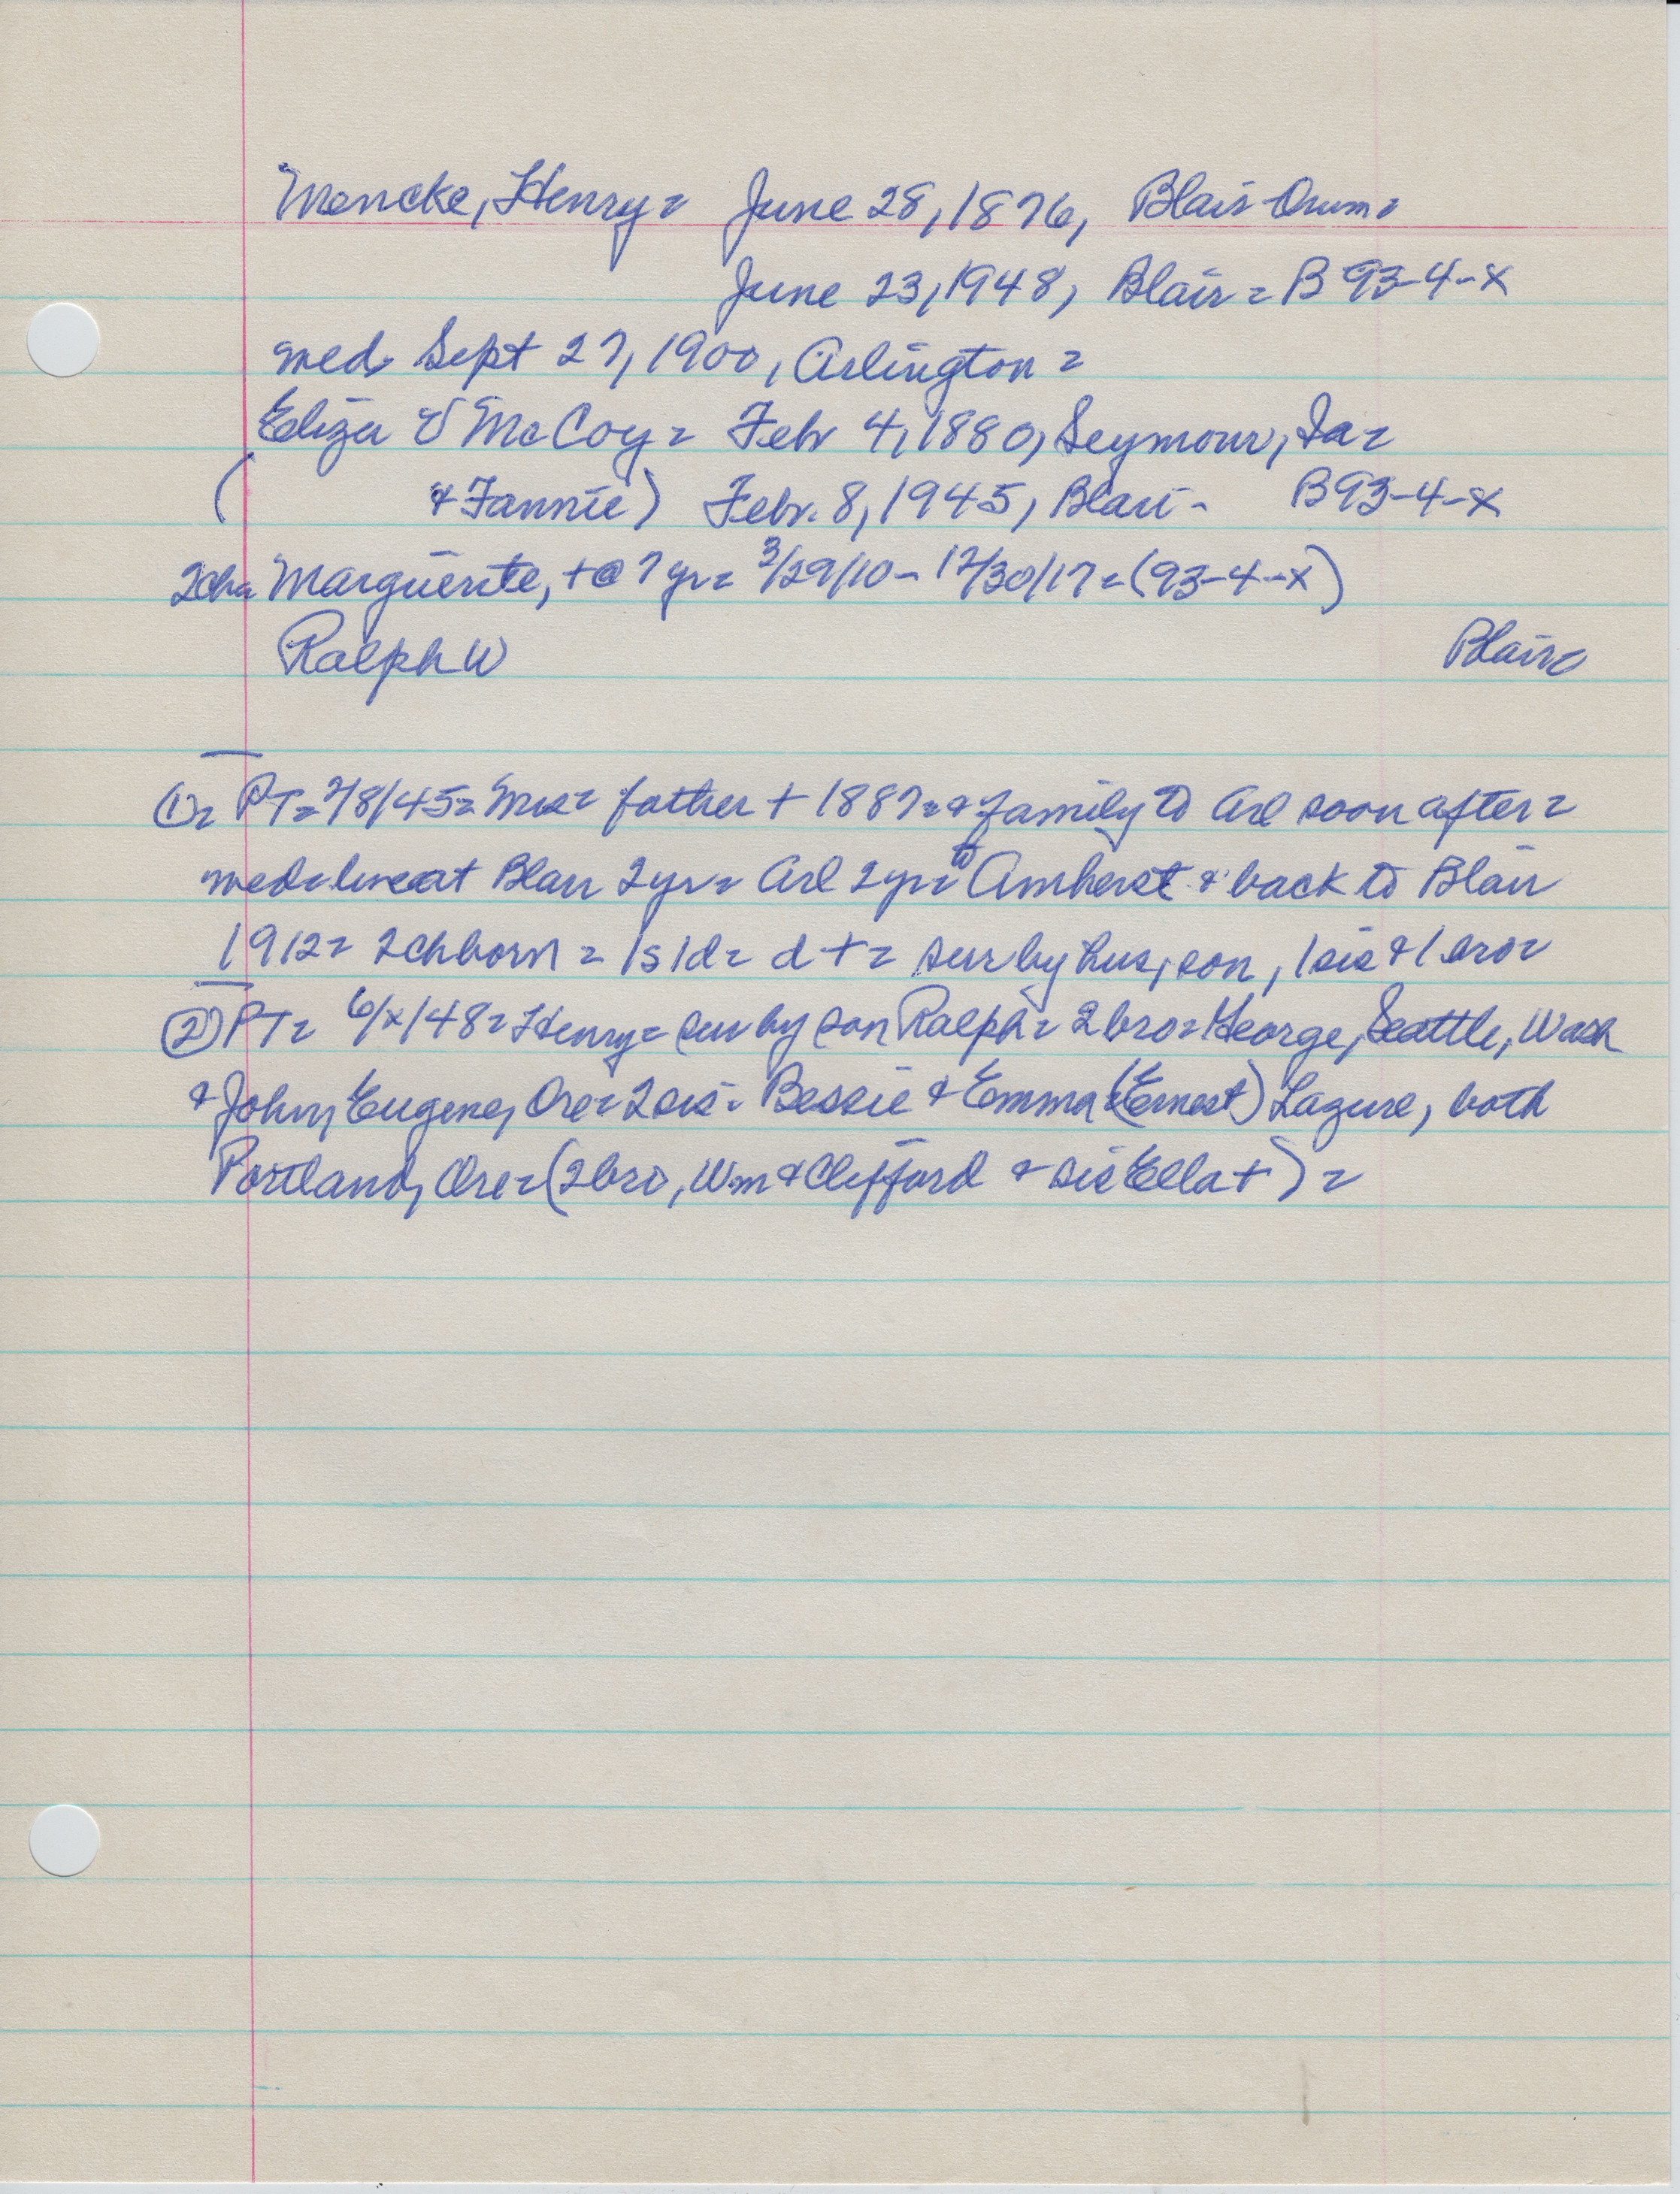 Mencke, Henry = June 28, 1876, Blair-Orum =
June 23, 1948, Blair = B 93-4-x
med Sept 27, 1900, Arlington =
Eliza E McCoy = Febr 4, 1880, Seymour, Ia =
( & Fannie) Febr. 8, 1945, Blair - B93-4-x
2ch = Marguerite, + @ 7 yr = 3/29/10 - 12/30/17 = (93-4-x)
Ralph W Blair =
① = PT = 2/8/45 = Mrs = father + 1887 = & family to Arl soon after =
med = live at Blair 2yr = Arl 2yr = to Amherst & back to Blair
1912 = 2ch born = 1s 1d = d + = sur by hus, son, 1 sis & 1 bro =
② PT = 6/x/48 = Henry = sur by son Ralph = 2 bro = George, Seattle, Wash
& John, Eugene, Ore = 2 sis - Bessie & Emma (Ernest) Lazure, both
Portland, Ore = (2 bro, Wm & Clifford & sis Ella +) =